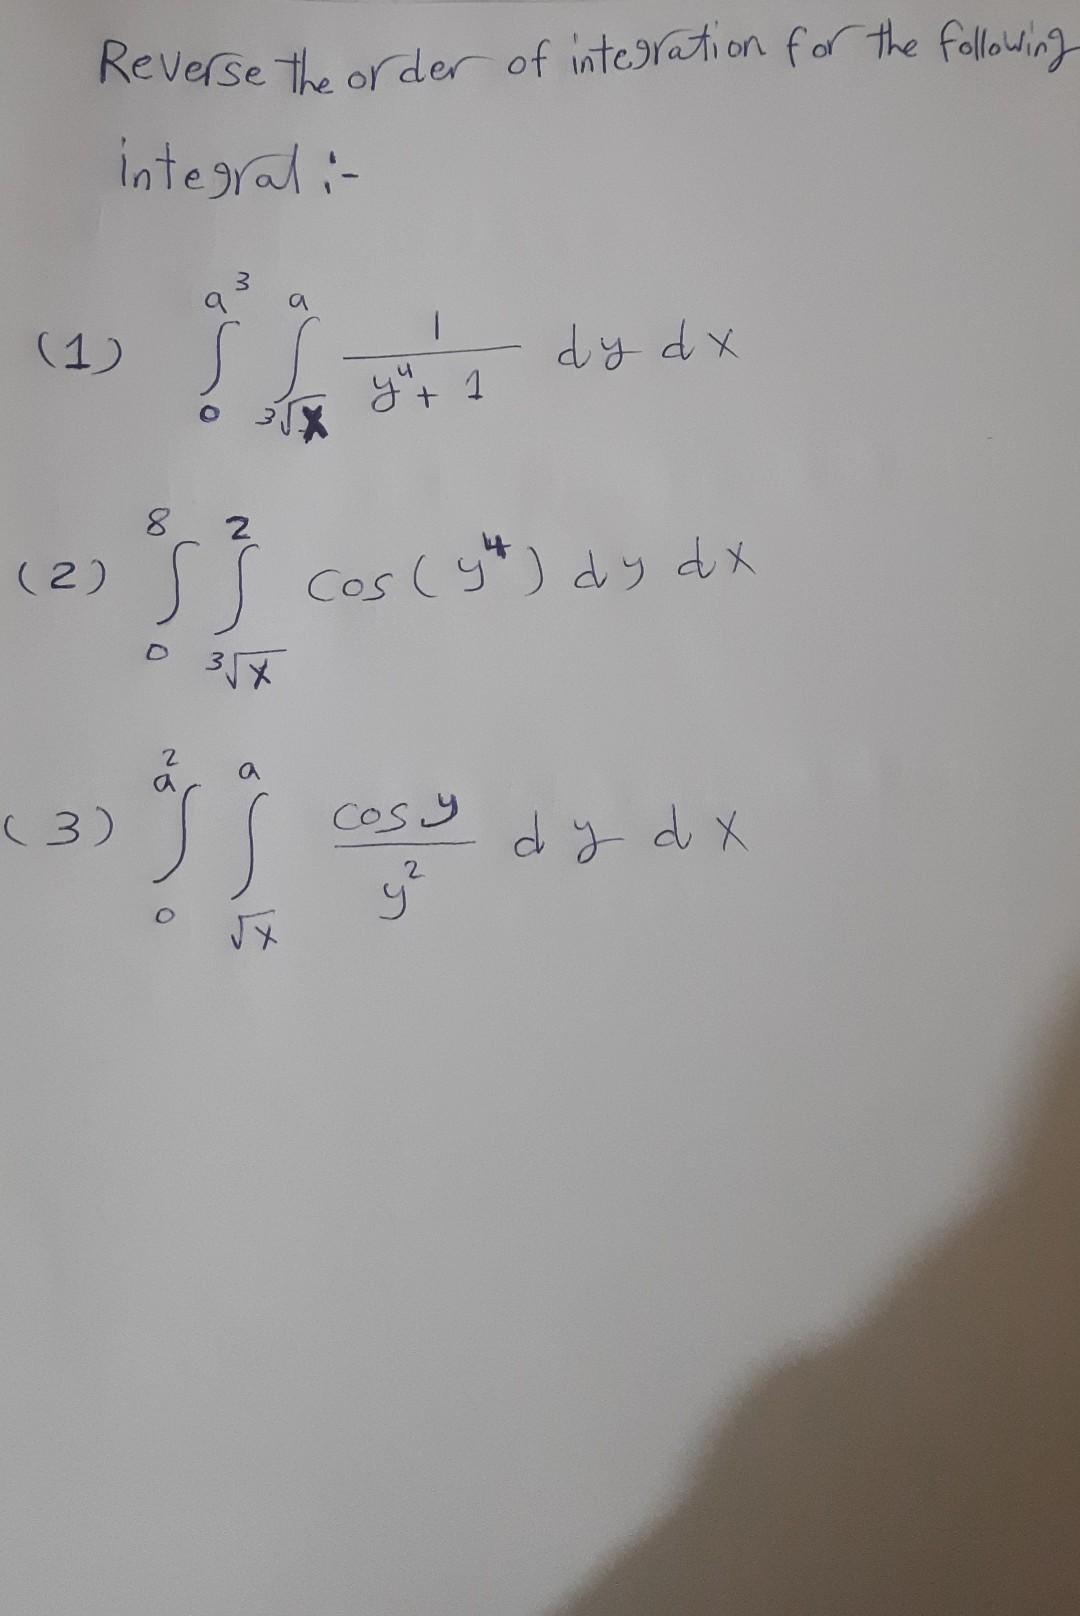 Reverse the order of integration for the following
integral :-
(1) ∫₀^{a³} ∫_{³√x}^{a} 1/(y⁴+1) dy dx
(2) ∫₀^{8} ∫_{³√x}^{2} cos(y⁴) dy dx
(3) ∫₀^{a²} ∫_{√x}^{a} cos y/y² dy dx